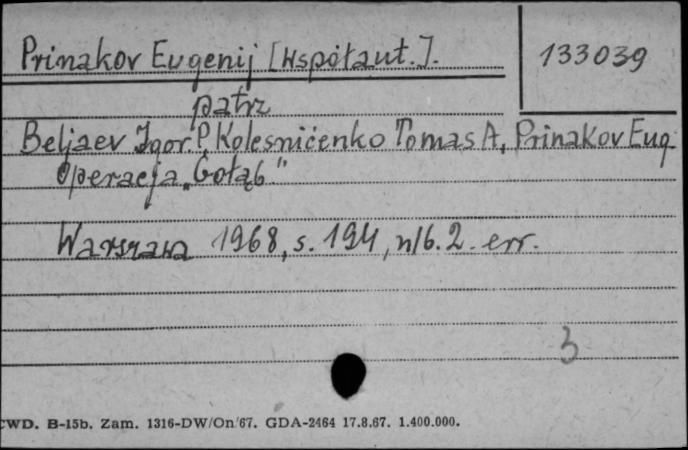 Prinakov Eugenij [współaut.].
133039
patrz
Beljaev Igor. P, Kolesničenko Tomas A, Prinakov Eug.
Operacja „Gołąb"
Warszawa 1968, s. 194, nlb. 2. err.
3
CWD. B-15b. Zam. 1316-DW/On/67. GDA-2464 17.8.67. 1.400.000.